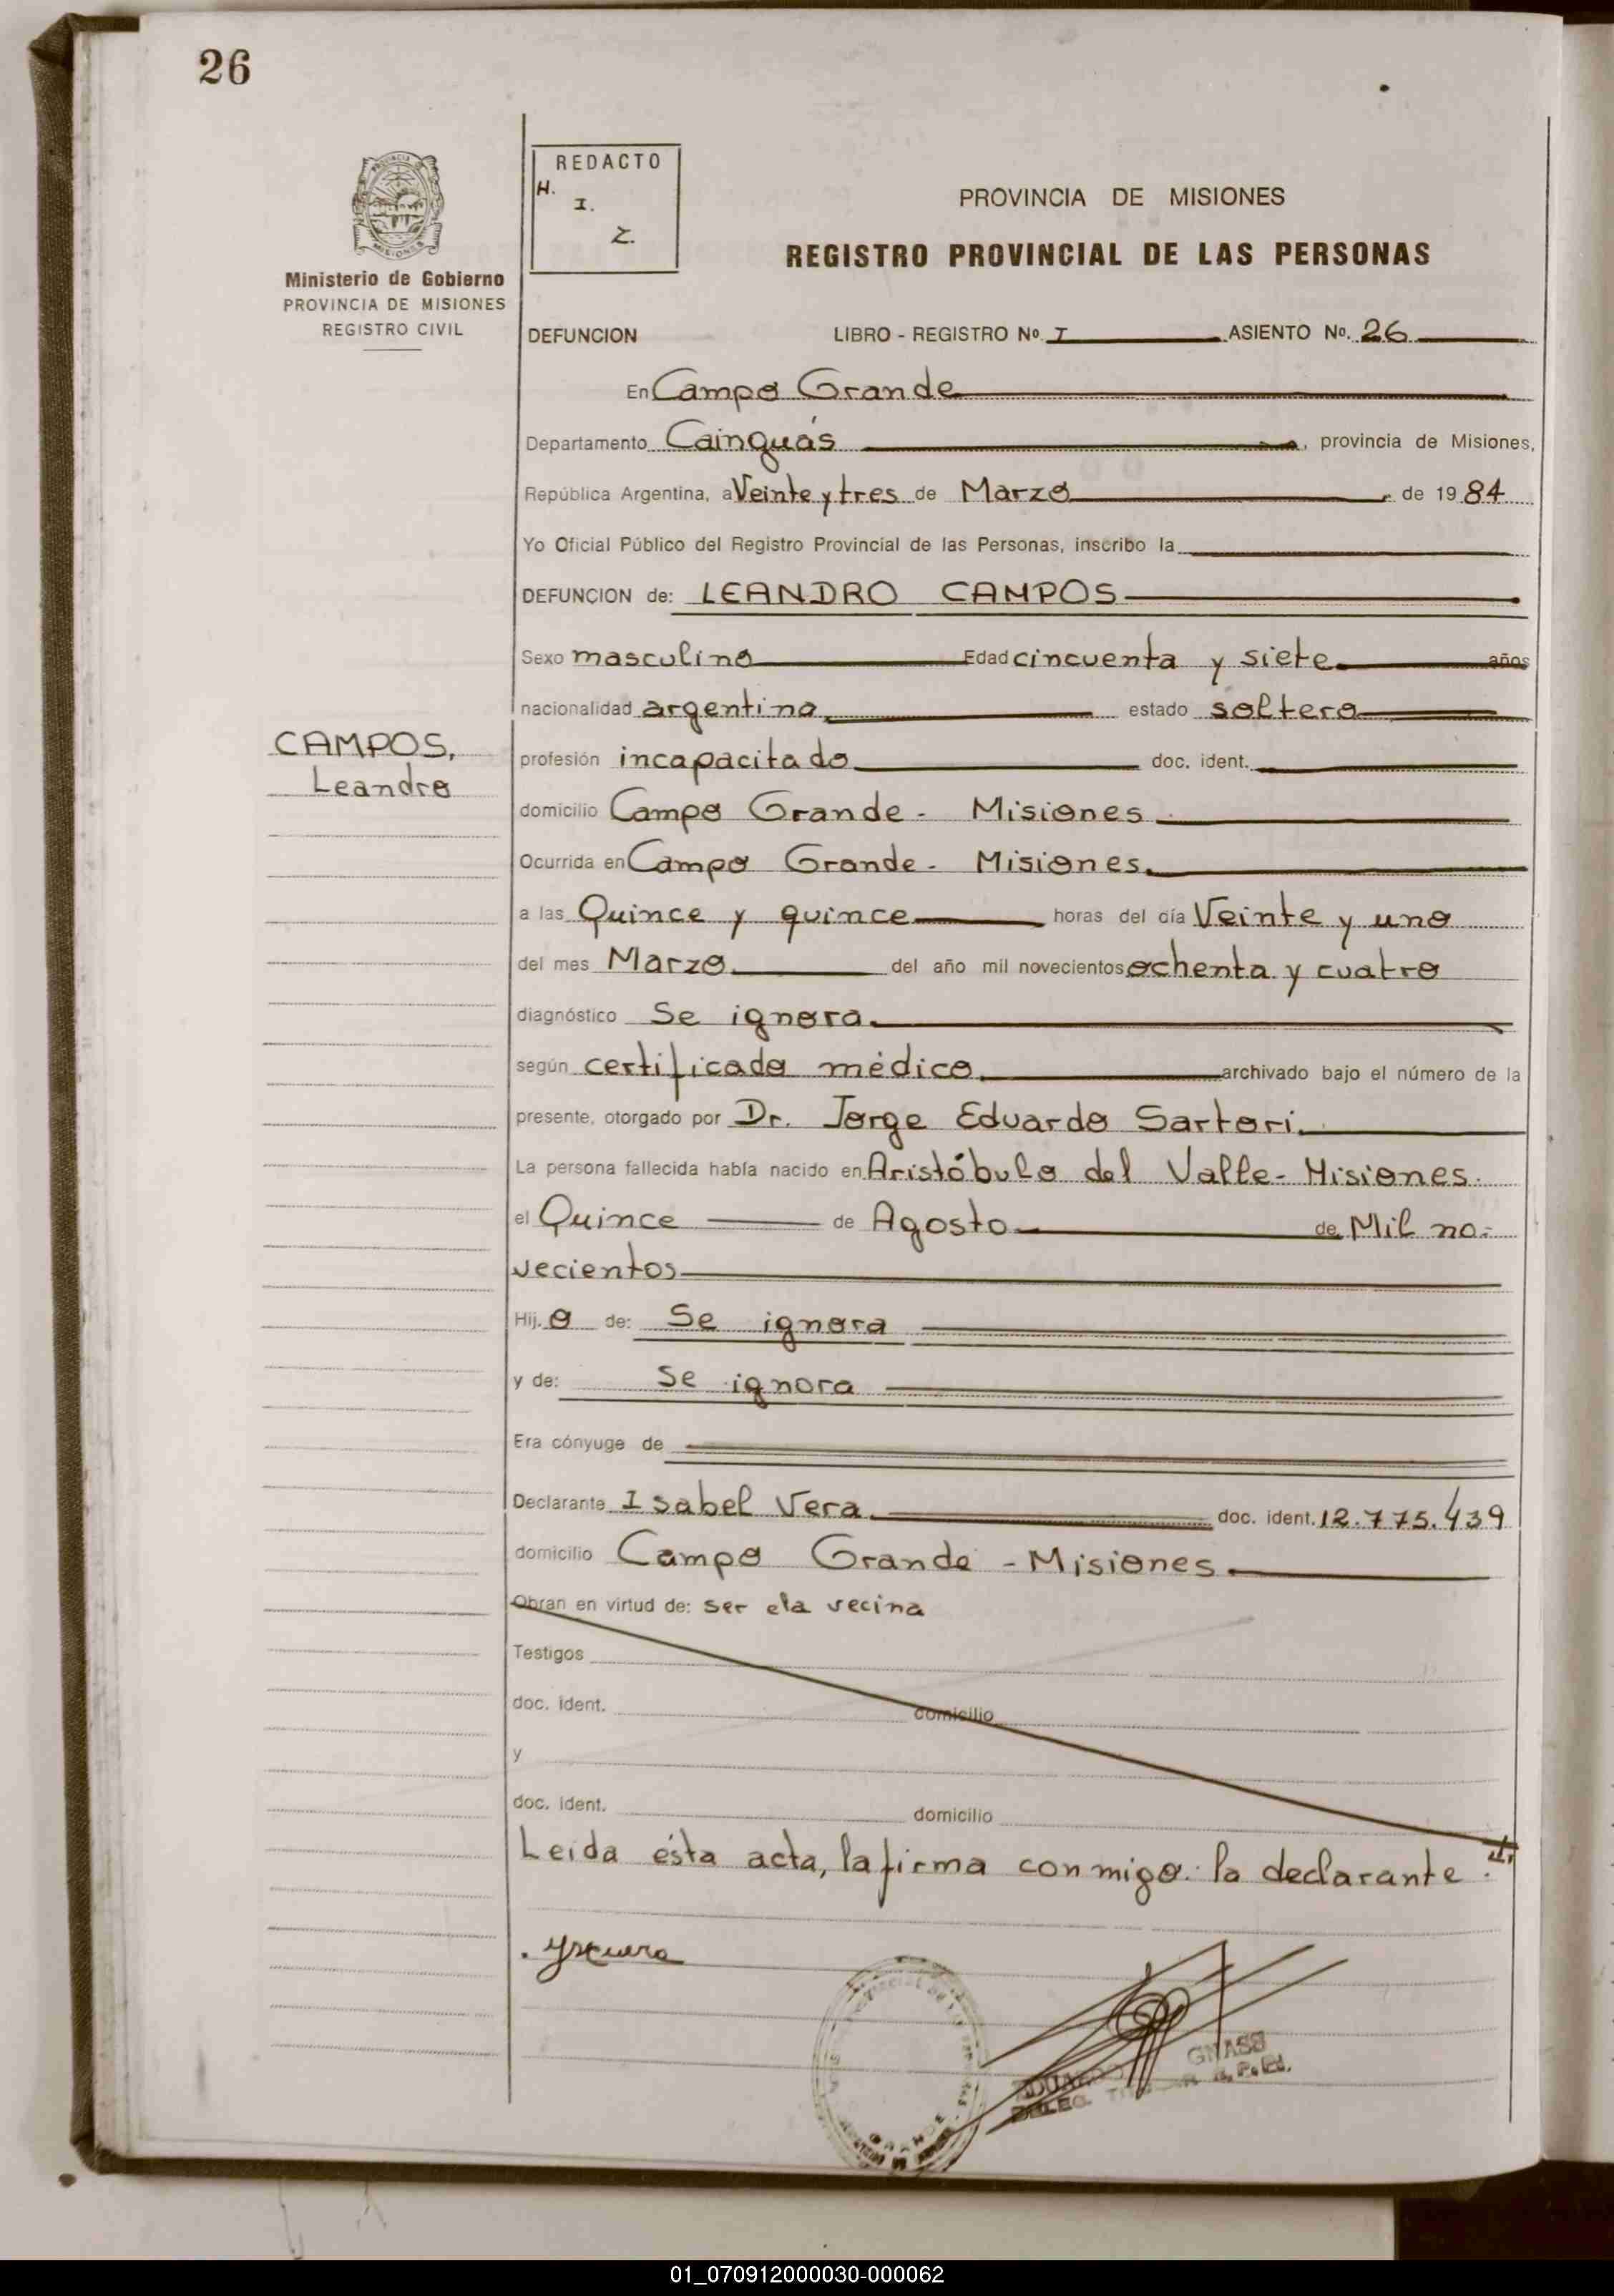 26
REDACTO
H.
I.
Z.
Ministerio de Gobierno
PROVINCIA DE MISIONES
REGISTRO CIVIL
PROVINCIA DE MISIONES
REGISTRO PROVINCIAL DE LAS PERSONAS
DEFUNCION LIBRO - REGISTRO Nº I ASIENTO Nº. 26
En Campo Grande
Departamento Cainguás, provincia de Misiones,
República Argentina, a Veinte y tres de Marzo de 1984
Yo Oficial Público del Registro Provincial de las Personas, inscribo la
DEFUNCION de: LEANDRO CAMPOS
Sexo masculino Edad cincuenta y siete años
nacionalidad argentino estado soltero
CAMPOS,
Leandro
profesión incapacitado doc. ident.
domicilio Campo Grande - Misiones
Ocurrida en Campo Grande - Misiones
a las Quince y quince horas del día Veinte y uno
del mes Marzo del año mil novecientos ochenta y cuatro
diagnóstico Se ignora
según certificado médico archivado bajo el número de la
presente, otorgado por Dr. Jorge Eduardo Sartori
La persona fallecida había nacido en Aristóbulo del Valle - Misiones.
el Quince de Agosto de Mil no-
vecientos
Hij o de: Se ignora
y de: Se ignora
Era cónyuge de
Declarante Isabel Vera doc. ident. 12.775.439
domicilio Campo Grande - Misiones
Obran en virtud de: ser ela vecina
Testigos
doc. ident. domicilio
y
doc. ident. domicilio
Leída ésta acta, la firma conmigo: la declarante.
EDUARDO GNASS
DELEG. R. P. P.
01_070912000030-000062